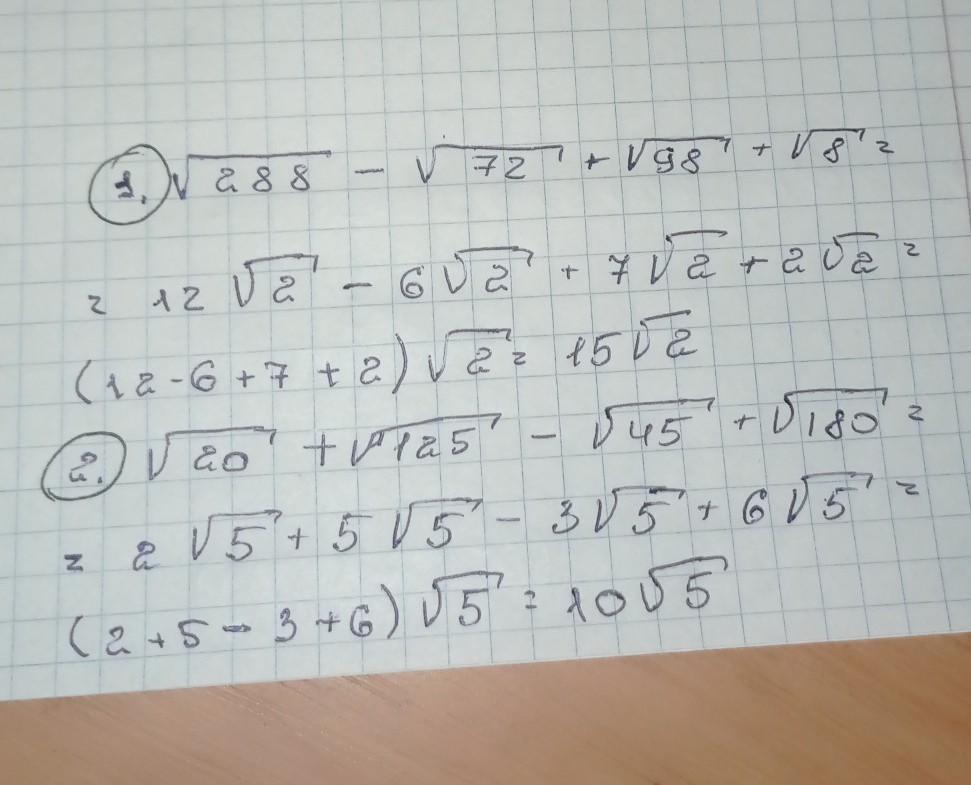 1. √288 - √72 + √98 + √8 =
= 12√2 - 6√2 + 7√2 + 2√2 =
(12-6+7+2)√2 = 15√2
2. √20 + √125 - √45 + √180 =
= 2√5 + 5√5 - 3√5 + 6√5 =
(2+5-3+6)√5 = 10√5